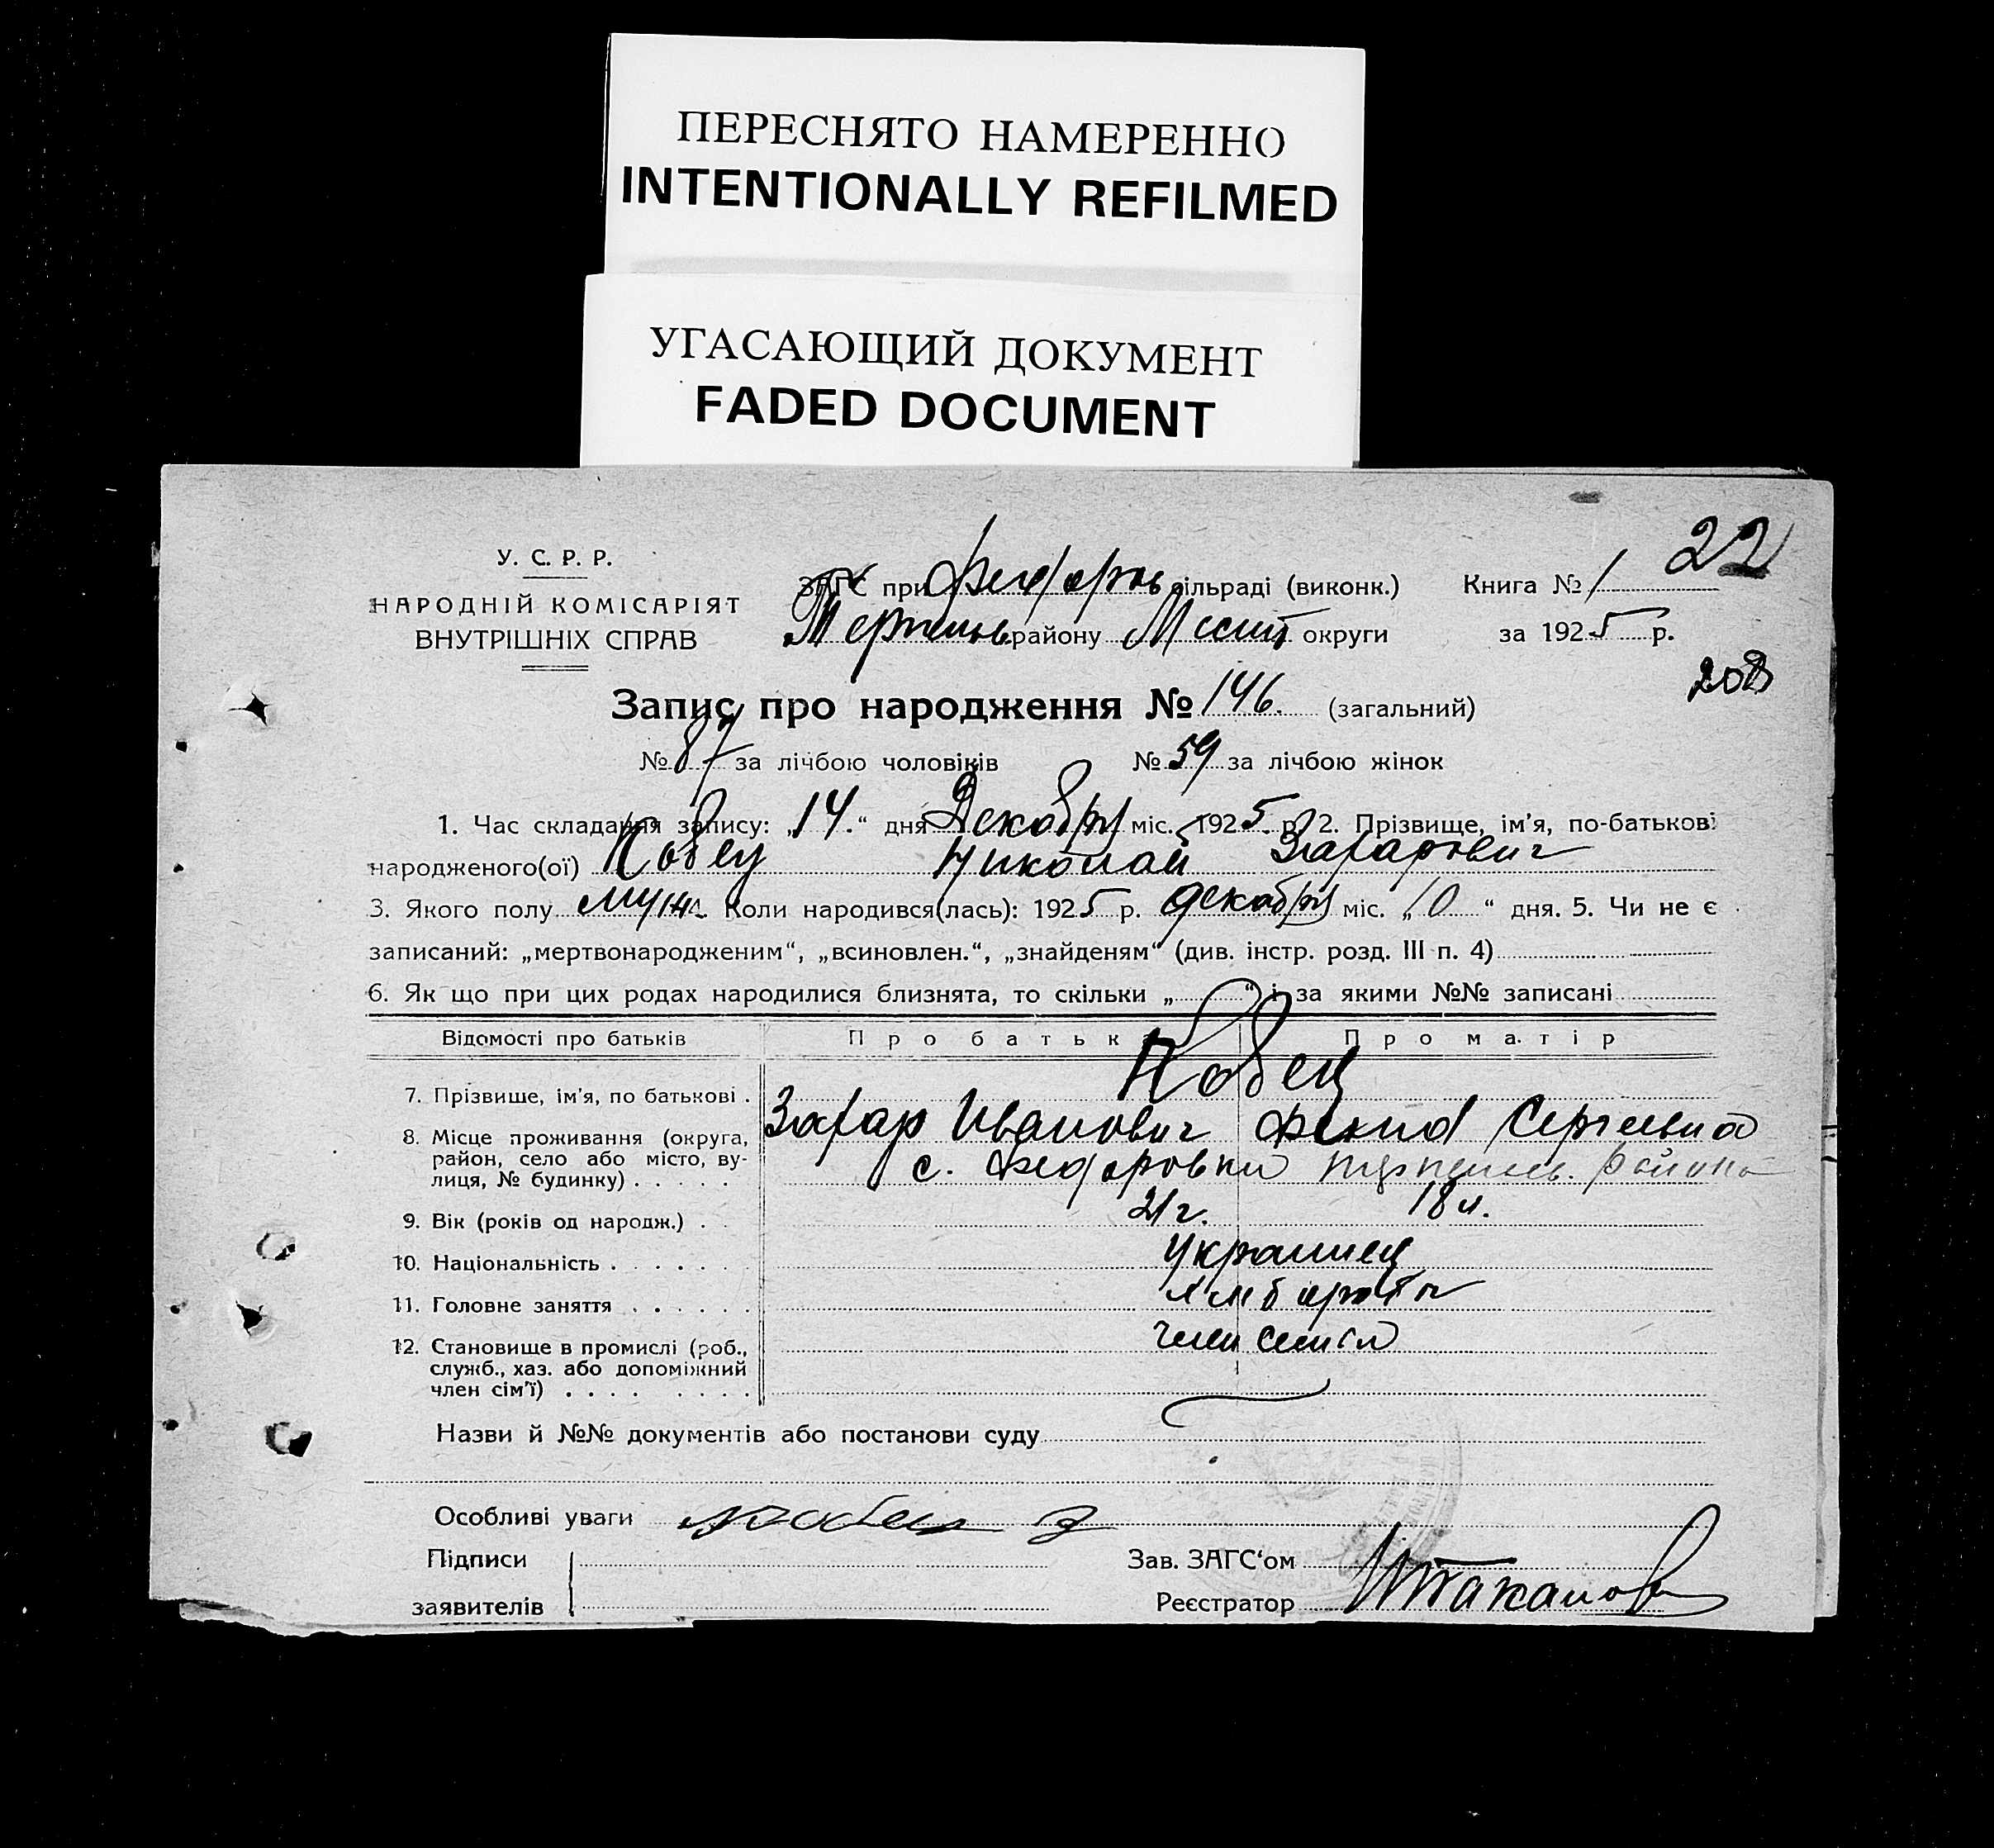 ПЕРЕСНЯТО НАМЕРЕННО
INTENTIONALLY REFILMED
УГАСАЮЩИЙ ДОКУМЕНТ
FADED DOCUMENT
22
У. С. Р. Р.
НАРОДНІЙ КОМІСАРІЯТ
ВНУТРІШНІХ СПРАВ
ЗАГС при Федоров сільраді (виконк.) Книга № 1
району округи за 1925 р.
208
Запис про народження № 146. (загальний)
№ 87 за лічбою чоловіків № 59 за лічбою жінок
1. Час складання запису: „14.“ дня Декабря міс. 1925 р. 2. Прізвище, ім'я, по-батькові
народженого(ої) Кобец Николай Захарович
3. Якого полу муж. Коли народився(лась): 1925 р. декабря міс. „10“ дня. 5. Чи не є
записаний: „мертвонародженим“, „всиновлен.“, „знайденям“ (див. інстр. розд. III п. 4)
6. Як що при цих родах народилися близнята, то скільки „ “ і за якими №№ записані
Відомості про батьків Про батька Про матір
Кобец
7. Прізвище, ім'я, по батькові .
Захар Иванович Сергеевна
8. Місце проживання (округа,
район, село або місто, ву-
лиця, № будинку) . . . . .
с. Федоровка района
9. Вік (років од народж.) . 21 г. 18 л.
10. Національність . . . . . . . украинец
11. Головне заняття . . . . . . хлебороб
12. Становище в промислі (роб.,
служб., хаз. або допоміжний
член сім'ї) . . . . . . . .
член семьи
Назви й №№ документів або постанови суду
Особливі уваги
Підписи
заявителів
Зав. ЗАГС'ом
Реєстратор